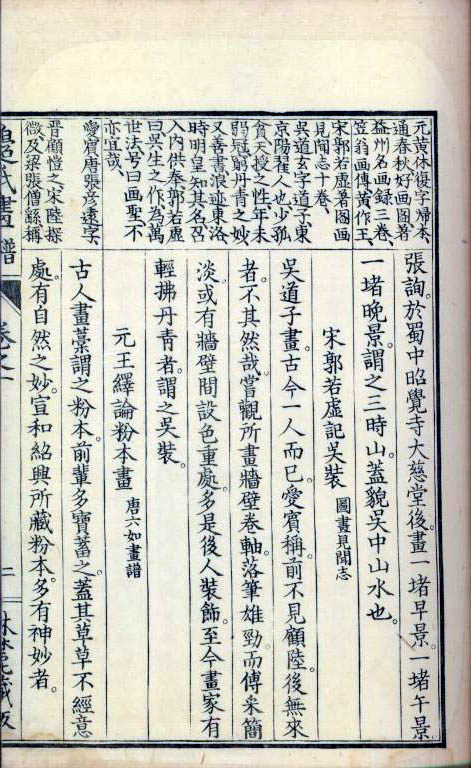 元黄休復字帰本、
通春秋好画图著
益州名画録三卷、
笠翁画傳黄作王、
宋郭若虚著图画
見聞志十卷、
吳道玄字道子東
京陽翟人也少孤
貧天授之性年未
弱冠窮丹青之妙、
又善書浪迹東洛
時明皇知其名召
入内供奉郭若虚
曰吳生之作為萬
世法号曰画聖不
亦宜哉、
愛賓唐張彦遠字、
晋顧愷之宋陸探
微及梁張僧繇稱
張詢於蜀中昭覺寺大慈堂後畫一堵早景。一堵午景
一堵晚景。謂之三時山。蓋貌吳中山水也。
宋郭若虚記吳裝 圖畫見聞志
吳道子畫。古今一人而已。愛賓稱。前不見顧陸。後無來
者。不其然哉。嘗觀所畫牆壁卷軸。落筆雄勁。而傅采簡
淡。或有牆壁間設色重處。多是後人裝飾。至今畫家有
輕拂丹青者。謂之吳裝。
元王繹論粉本畫 唐六如畫譜
古人畫藁謂之粉本。前輩多寶蓄之。蓋其草草不經意
處。有自然之妙。宣和紹興所藏粉本。多有神妙者。
畫譜
卷之一
二
藏版